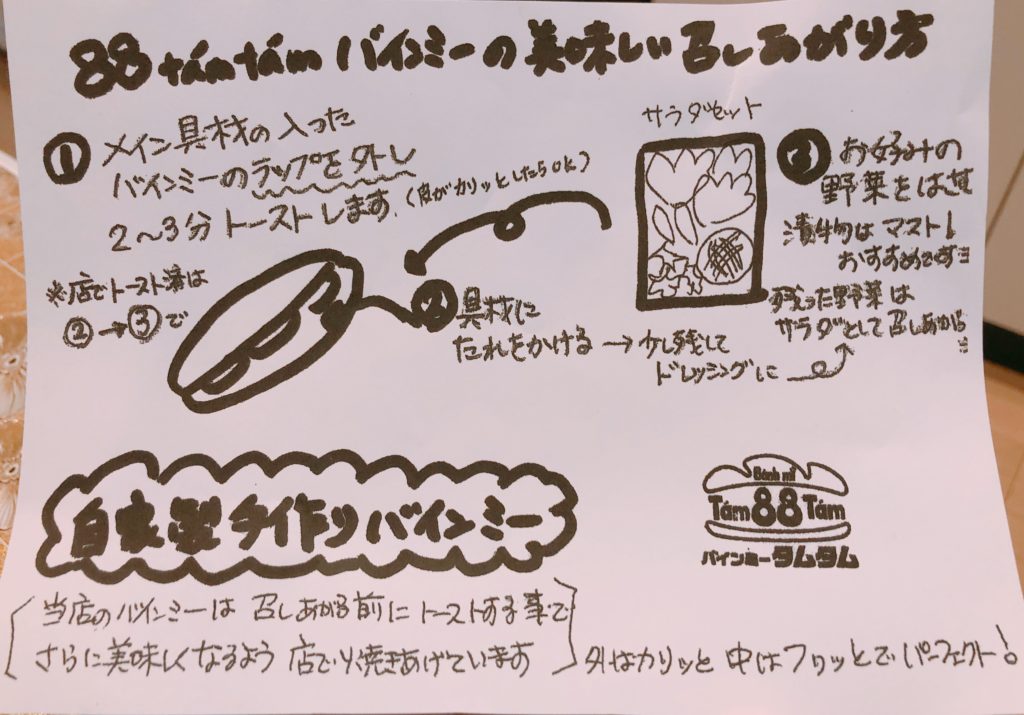 88 támtám バインミーの美味しい召しあがり方
① メイン具材の入った
バインミーのラップを外し
2〜3分トーストします.(皮がカリッとしたらOK)
※店でトースト済は
②→③で
② 具材に
たれをかける → 少し残して
ドレッシングに
サラダセット
③ お好みの
野菜をはさむ
漬物はマスト!
おすすめです
残った野菜は
サラダとして召しあがる
自家製手作りバインミー
Bánh mì
Tám 88 Tám
バインミータムタム
当店のバインミーは召しあがる前にトーストする事で
さらに美味しくなるよう店で焼きあげています
外はカリッと中はフワッとでパーフェクト!